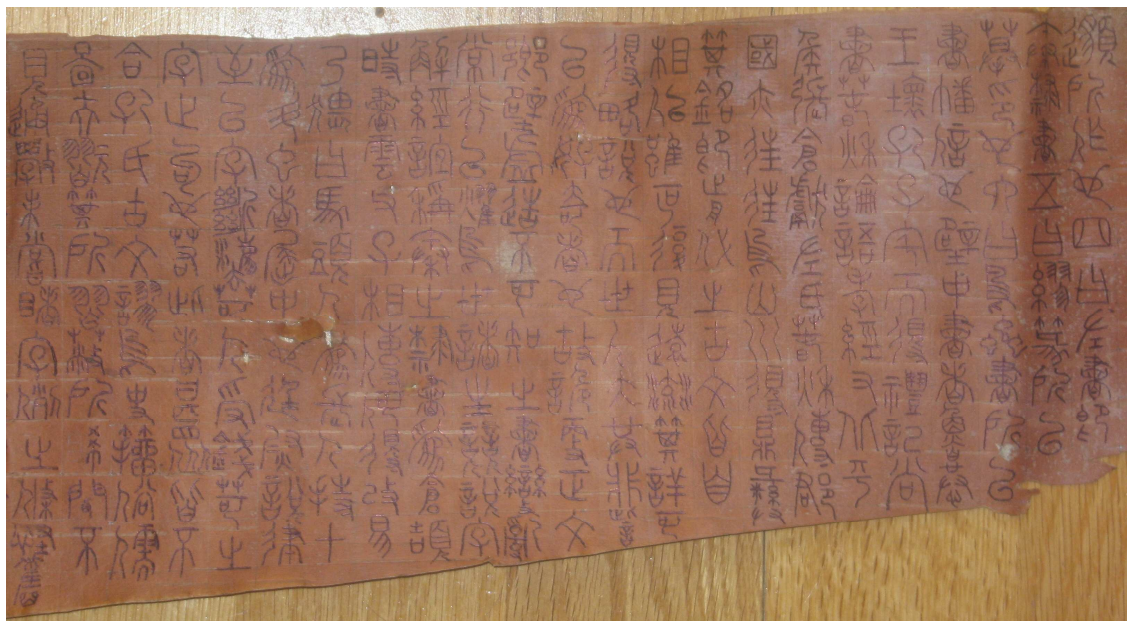 邈所作也四曰左書即
秦隸書五曰繆篆所以
摹印也六曰鳥蟲書所以
書幡信也壁中書者魯恭
王壞孔子宅而得禮記尚
書春秋論語孝經又北平
侯張倉獻春秋左氏傳郡
國亦往往於山川得鼎彝
其銘即前代之古文皆自
相似雖叵復見遠流其詳可
得略說也而世人大共非訾
以為好奇者也故詭更正文
鄉壁虛造不可知之書變亂
常行以燿於世諸生競逐說字
解經誼稱秦之隸書為倉頡
時書云父子相傳何得改易
乃猥曰馬頭人為長人持十
為斗虫者屈中也廷尉說律
至以字斷法苛人受錢苛之
字止句也若此者甚眾皆不
合孔氏古文謬於史籀俗儒
鄙夫翫其所習蔽所希聞不
見通學未嘗睹字例之條